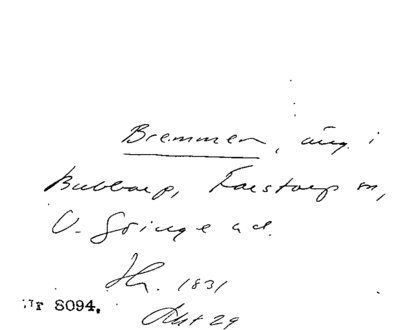 Bremmen, äng i
Bubbarp, Farstorp sn,
V. Göinge hd.
Hr. 1831
Akt 29
Nr 8094.